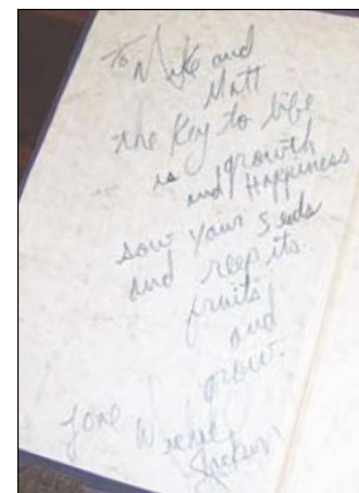 To Mike and
Matt
the Key to life
is growth
and Happiness
sow your seeds
and reep its
fruits
and
grow.
Love
Jackson